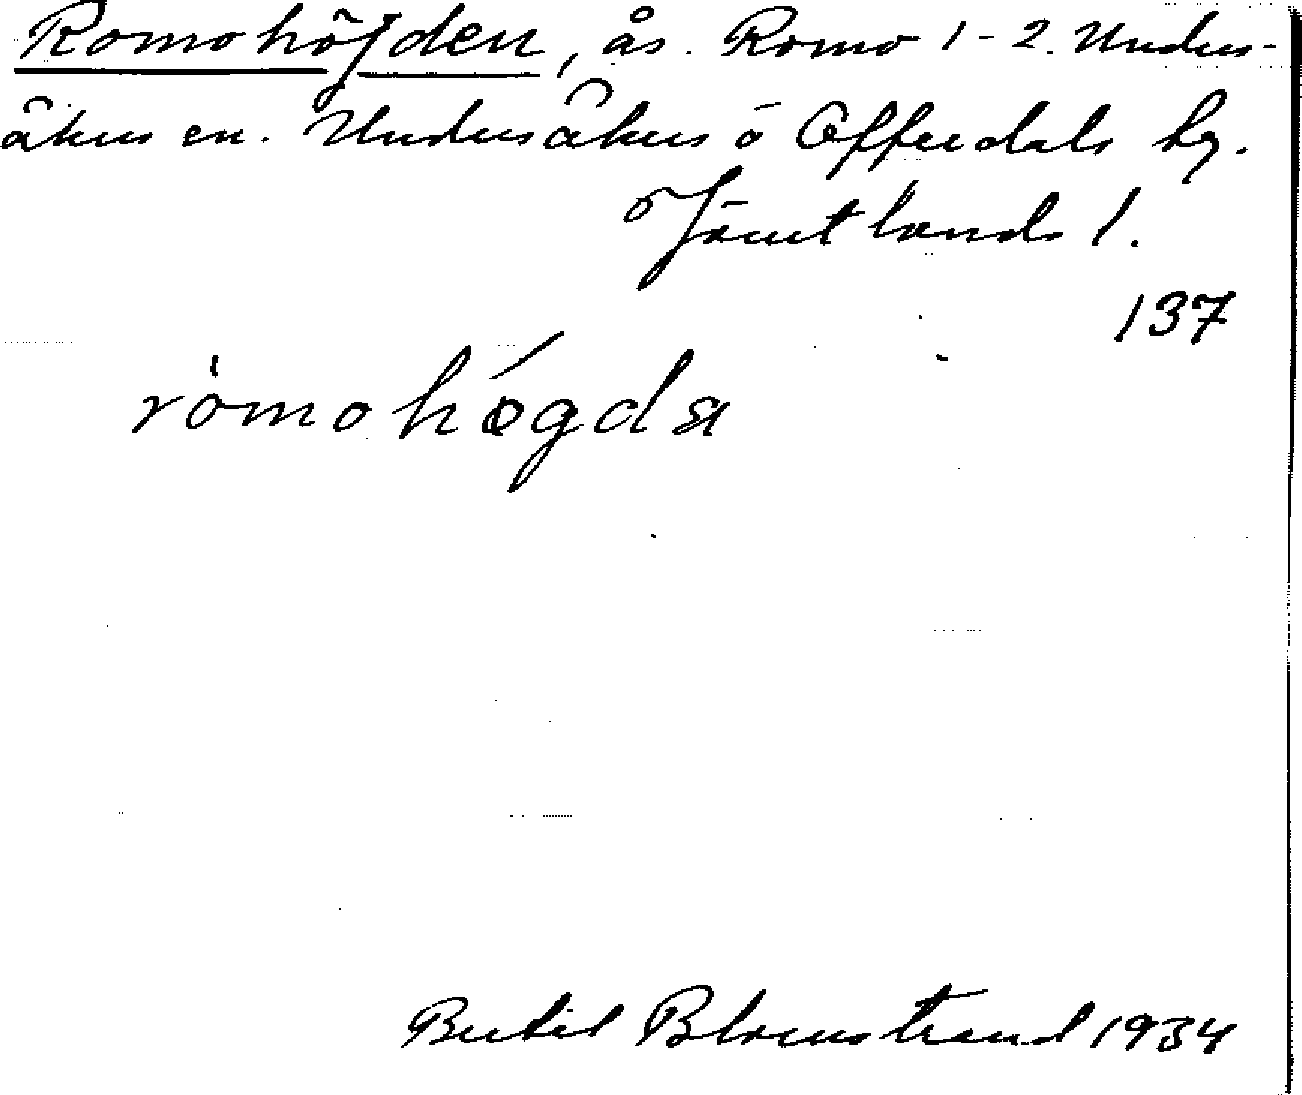 Romohöjden, ås. Romo 1-2. Unders-
åkers sn. Undersåkers o Offerdals hg.
Jämtlands l.
137
römohøgda
Bertil Blomstrand 1934